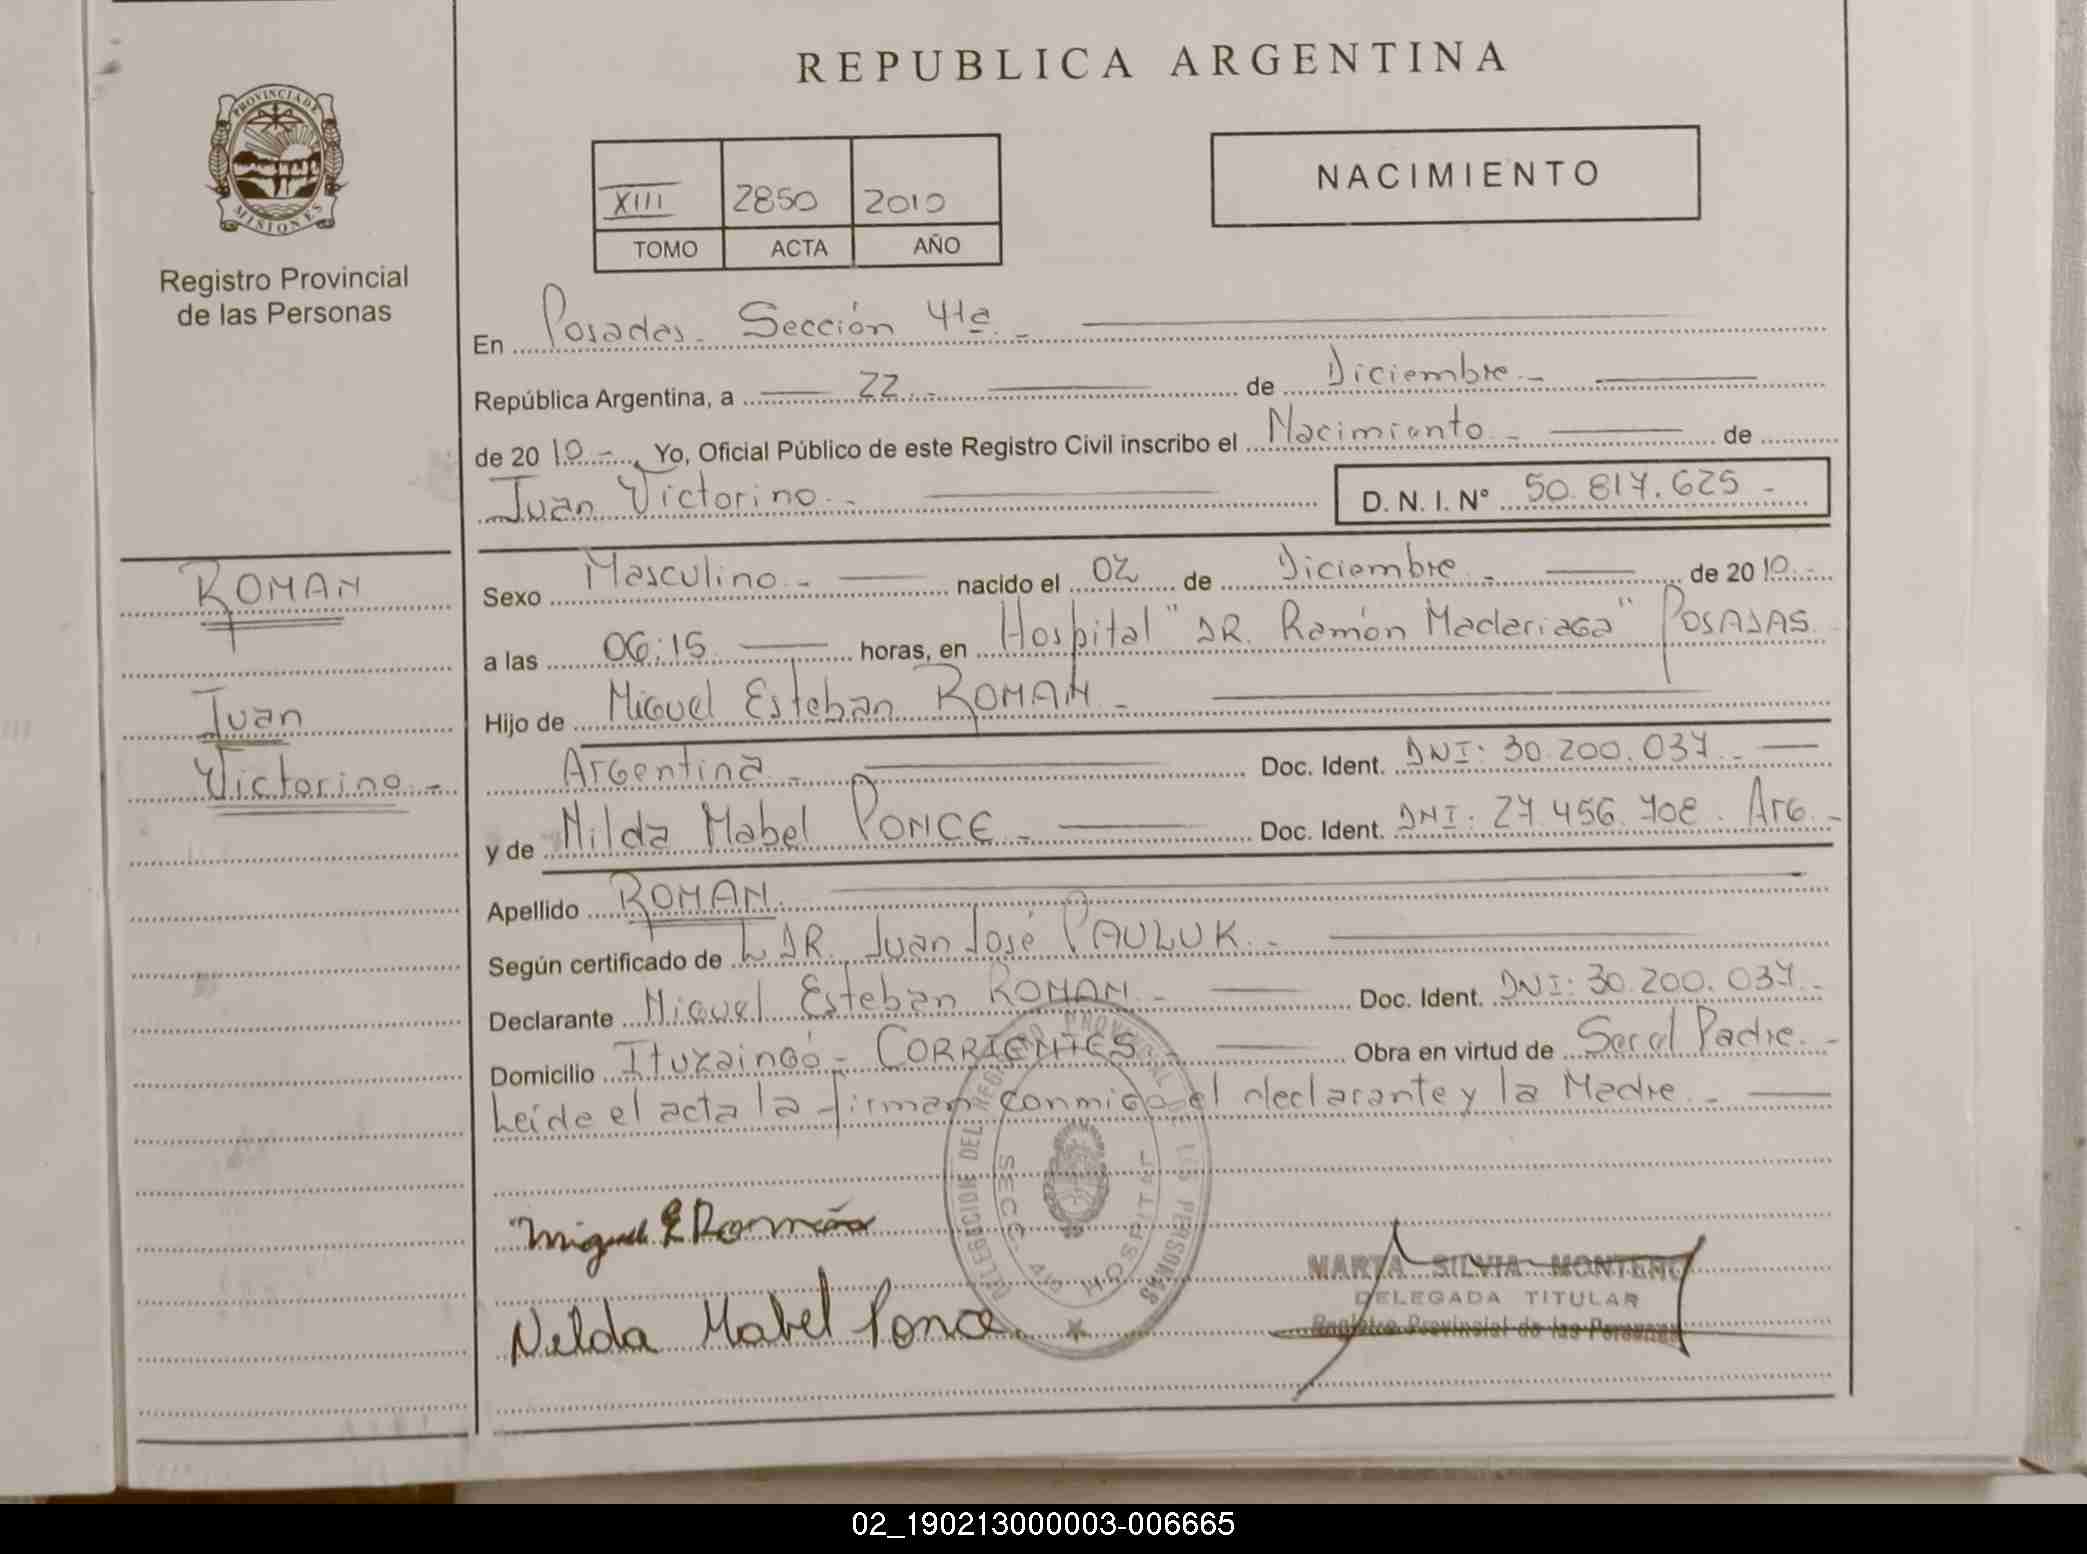 REPUBLICA ARGENTINA
PROVINCIA DE
MISIONES
Registro Provincial
de las Personas
XIII 2850 2010
TOMO ACTA AÑO
NACIMIENTO
En Posadas - Sección 41a. -
República Argentina, a 22. - de Diciembre -
de 2010 -, Yo, Oficial Público de este Registro Civil inscribo el Nacimiento - de
Juan Victorino - D. N. I. N° 50.817.625 -
ROMAN
Juan
Victorino -
Sexo Masculino - nacido el 02 de Diciembre - de 2010 -
a las 06:15 horas, en Hospital "DR. Ramón Madariaga" POSADAS.
Hijo de Miguel Esteban ROMAN -
Argentina - Doc. Ident. DNI: 30.200.037 -
y de Nilda Mabel PONCE - Doc. Ident. DNI: 27.456.708. Arg. -
Apellido ROMAN.
Según certificado de L DR. Juan José PAULUK. -
Declarante Miguel Esteban ROMAN - Doc. Ident. DNI: 30.200.037. -
Domicilio Ituzaingó - CORRIENTES. - Obra en virtud de Ser el Padre. -
Leída el acta la firman conmigo el declarante y la Madre. -
DELEGACION DEL REGISTRO PROVINCIAL DE LAS PERSONAS
SECC. 41a HOSPITAL
Miguel E Román
Nilda Mabel Ponce.
MARTA SILVIA MONTERO
DELEGADA TITULAR
Registro Provincial de las Personas
02_190213000003-006665